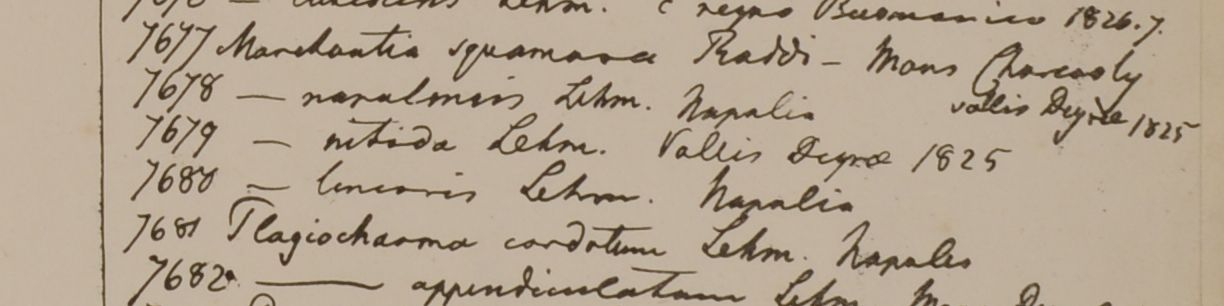 — Lehm. e regno Burmanico 1826.7.
7677 Marchantia squamosa Raddi – Mons Chareooly
vallis Deyræ 1825
7678 — napalensis Lehm. Napalia
7679 — nitida Lehm. Vallis Deyræ 1825
7680 — linearis Lehm. Napalia
7681 Plagiochasma cordatum Lehm. Napalia
7682 — appendiculatum Lehm.